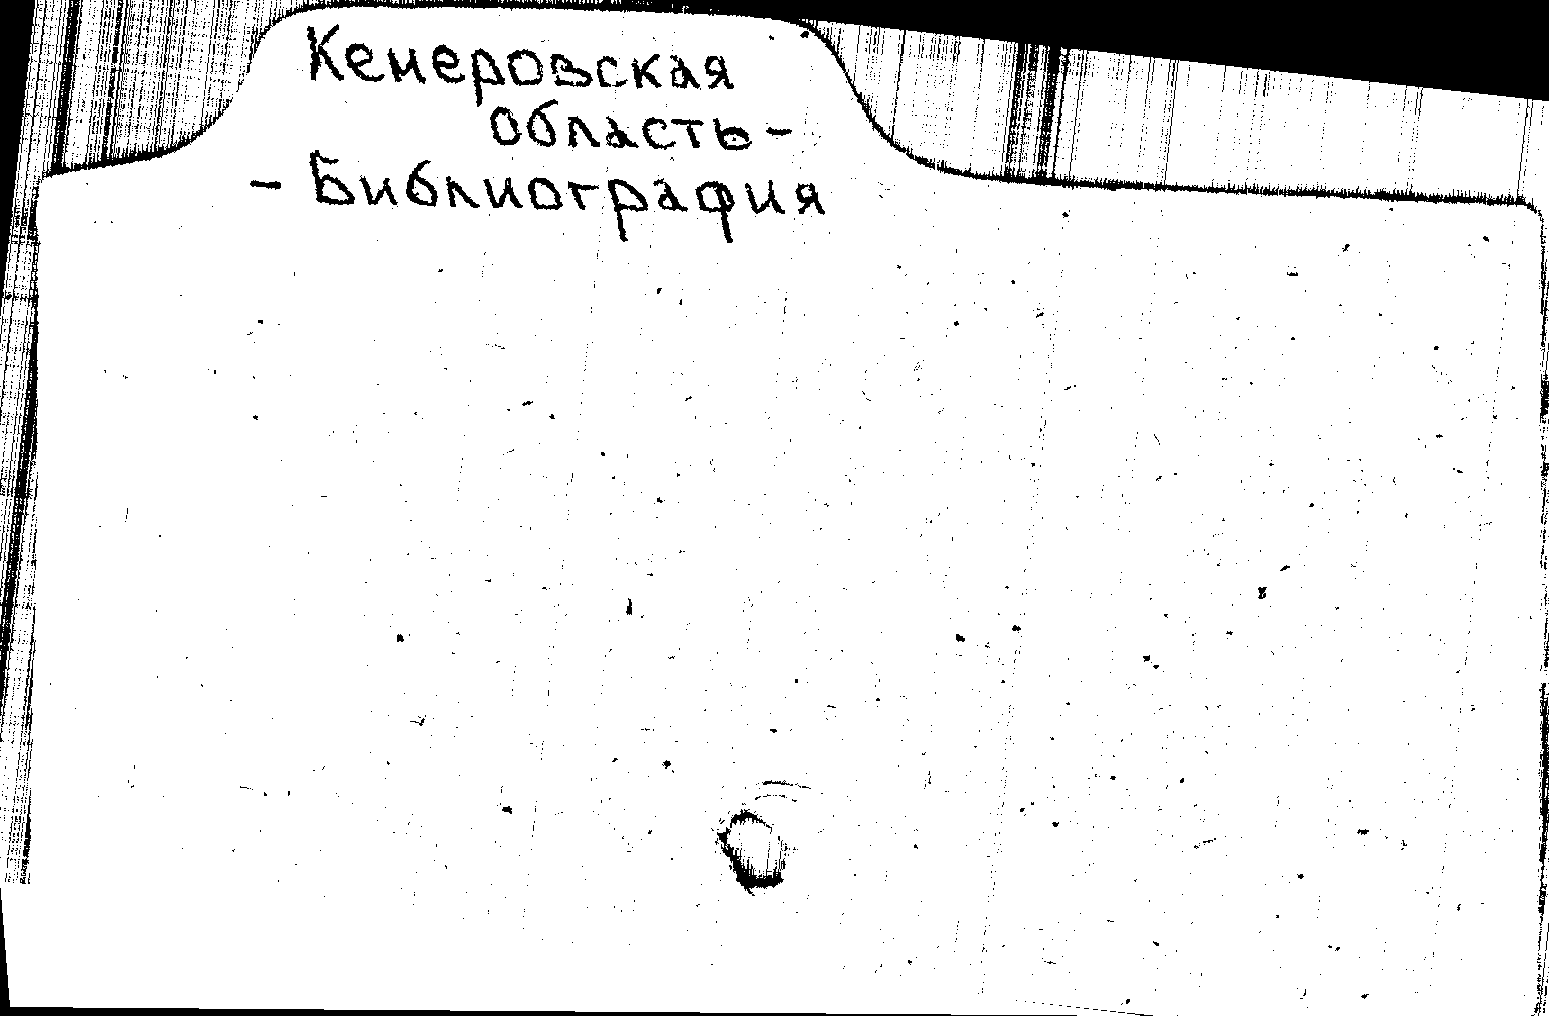 Кемеровская
область-
- Библиография